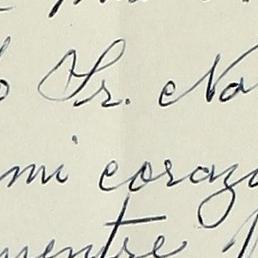 Sr. No
mi corazo
mentre